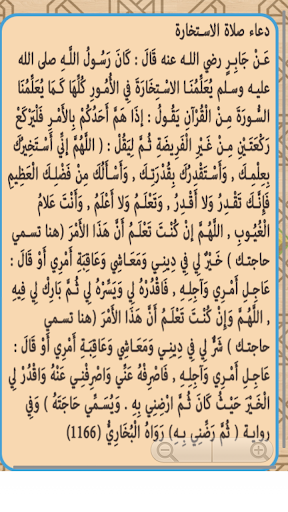 دعاء صلاة الاستخارة
عَـنْ جَابِـرٍ رضي اللـه عنه قَالَ : كَانَ رَسُولُ اللَّـهِ صلى الله
عليـه وسـلم يُعَلِّمُنَـا الاسْتِخَـارَةَ فِي الأُمُـورِ كُلِّهَا كَمَـا يُعَلِّمُنَا
السُّورَةَ مِـنْ الْقُرْآنِ يَقُولُ : إِذَا هَمَّ أَحَدُكُمْ بِالأَمْـرِ فَلْيَرْكَعْ
رَكْعَتَيْـنِ مِـنْ غَيْـرِ الْفَرِيضَةِ ثُـمَّ لِيَقُلْ : ( اللَّهُمَّ إنِّي أَسْتَخِيرُكَ
بِعِلْمِـكَ , وَأَسْتَقْدِرُكَ بِقُدْرَتِـكَ , وَأَسْـأَلُكَ مِنْ فَضْلِـكَ الْعَظِيمِ
فَإِنَّـكَ تَقْـدِرُ وَلا أَقْـدِرُ , وَتَعْلَـمُ وَلا أَعْلَمُ , وَأَنْتَ عَلامُ
الْغُيُـوبِ , اللَّهُـمَّ إنْ كُنْـتَ تَعْلَـمُ أَنَّ هَـذَا الأَمْرَ (هنا تسـمي
حاجتـك ) خَـيْرٌ لِي فِي دِينِـي وَمَعَـاشِي وَعَاقِبَةِ أَمْرِي أَوْ قَالَ :
عَاجِـلِ أَمْـرِي وَآجِلِـهِ , فَاقْدُرْهُ لِي وَيَسِّرْهُ لِي ثُـمَّ بَارِكْ لِي فِيهِ
, اللَّهُـمَّ وَإِنْ كُنْـتَ تَعْلَـمُ أَنَّ هَـذَا الأَمْرَ (هنا تسـمي
حاجتك ) شَرٌّ لِي فِي دِينِـي وَمَعَـاشِي وَعَاقِبَـةِ أَمْرِي أَوْ قَالَ :
عَاجِـلِ أَمْـرِي وَآجِلِـهِ , فَاصْرِفْهُ عَنِّي وَاصْرِفْنِـي عَنْهُ وَاقْدُرْ لِي
الْخَـيْرَ حَيْـثُ كَانَ ثُـمَّ ارْضِنِي بِهِ . وَيُسَمِّي حَاجَتَهُ ) وَفِي
روايـة ( ثُمَّ رَضِّنِي بِـهِ) رَوَاهُ الْبُخَارِيُّ (1166)